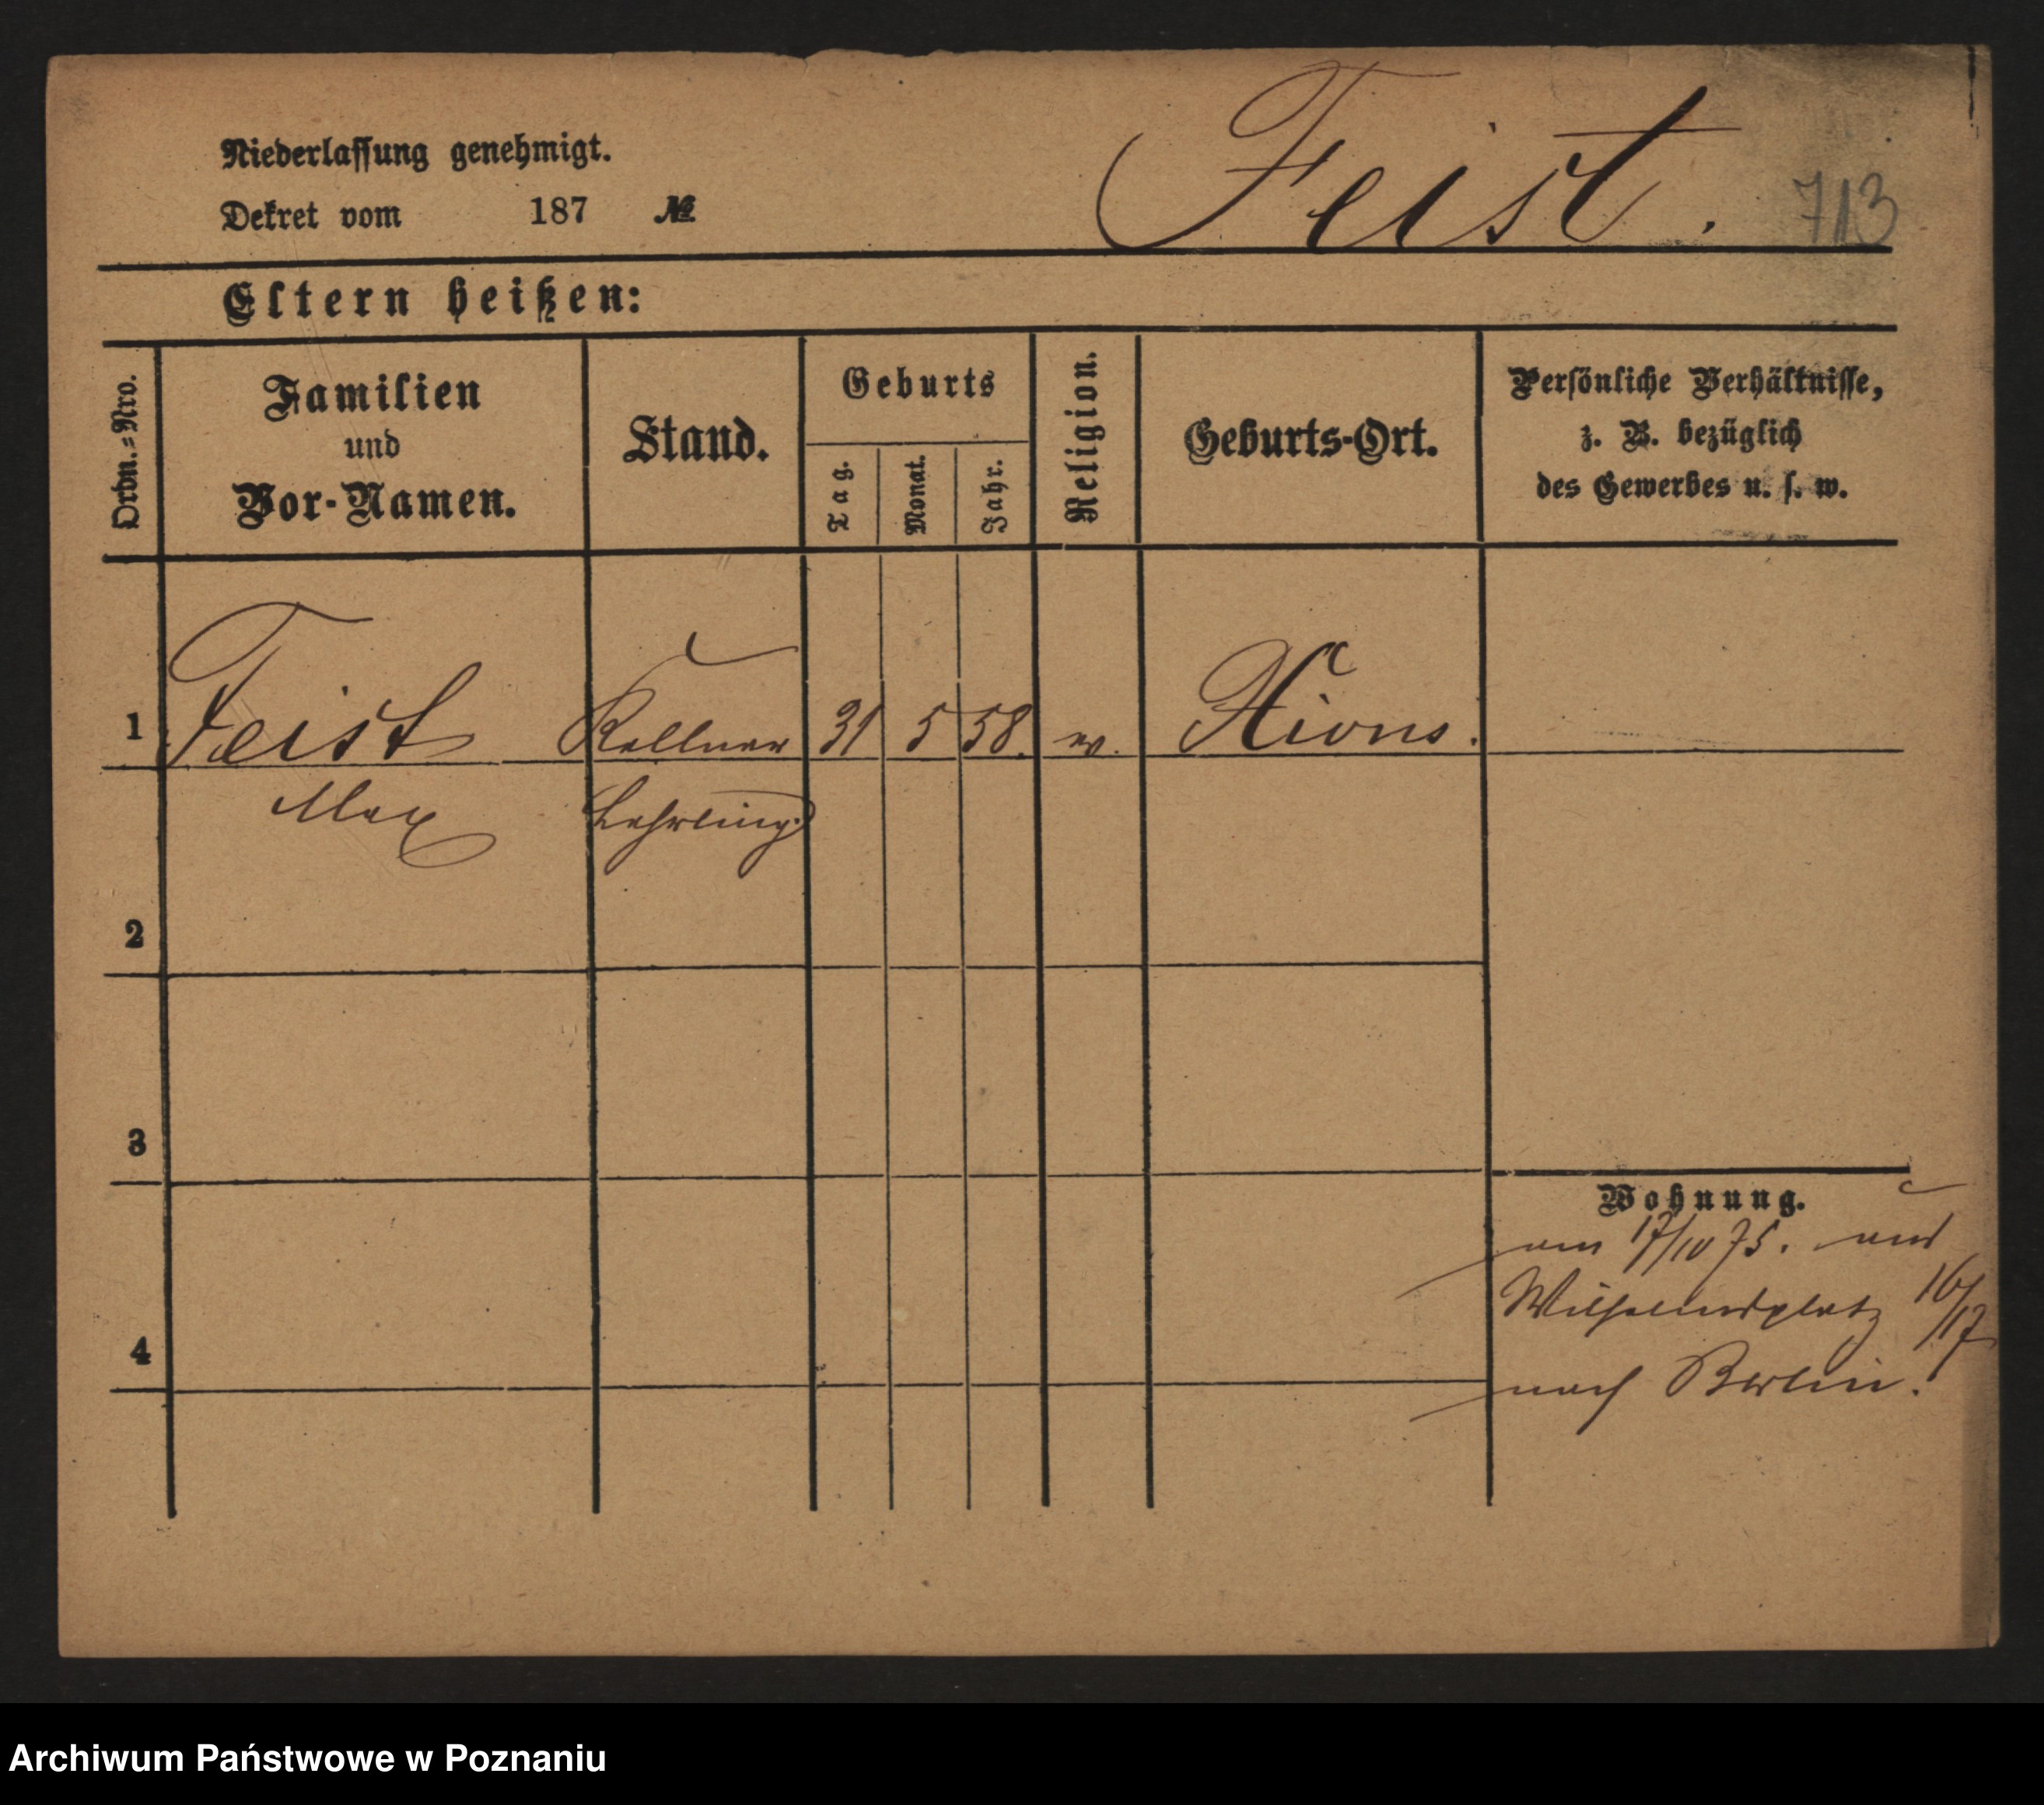 Niederlassung genehmigt.
Dekret vom 187 №
Feist.
713
Eltern heißen:
Ordn.=Nro.
Familien
und
Vor-Namen.
Stand.
Geburts
Tag.
Monat.
Jahr.
Religion.
Geburts-Ort.
Persönliche Verhältnisse,
z. B. bezüglich
des Gewerbes u. s. w.
1 Feist Kellner 31 5 58. Xions.
Max Lehrling
2
3
Wohnung.
am 17/10 75. aus
Wilhelmsplatz 16/17
4
nach Berlin.
Archiwum Państwowe w Poznaniu